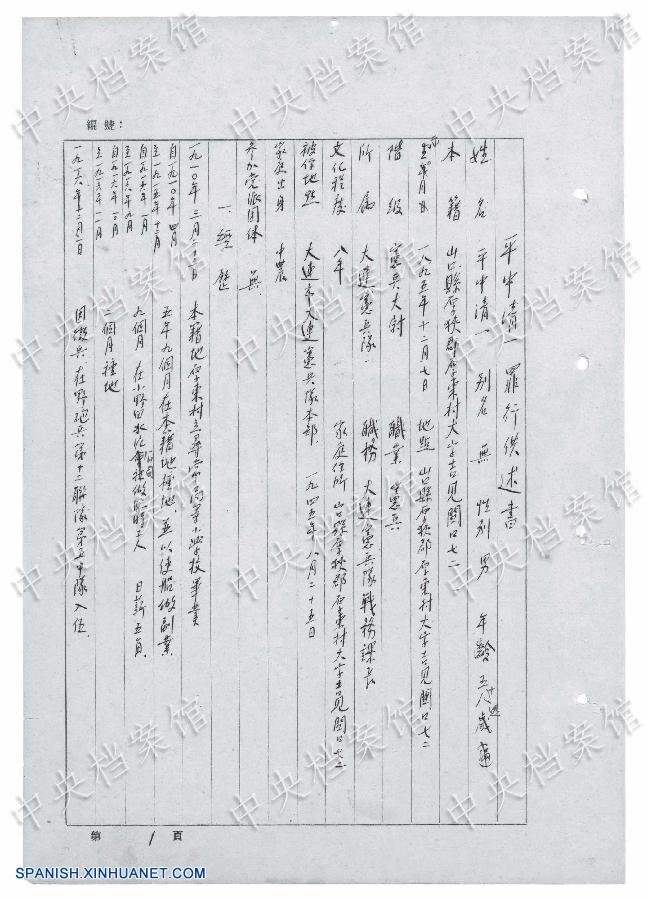 編號：
平中清一 罪行供述書
姓名 平中清一 別名 無 性別 男 年齡 五十八歲
本籍 山口縣厚狹郡厚東村大字吉見関口七二
生年月日 一八九五年十二月七日 地點 山口縣厚狹郡厚東村大字吉見関口七二
階級 憲兵大尉 職業 憲兵
所屬 大連憲兵隊. 職務 大連憲兵隊戰務課長
文化程度 八年 家庭住所 山口縣厚狹郡厚東村大字吉見関口七二
被俘地點 大連市大連憲兵隊本部. 一九四五年八月二十五日
家庭出身 中農
参加党派团体 無
一. 經歷
一九一〇年三月二十日 本籍地厚東村立尋常高等小学校畢業
自一九一〇年四月
至一九一五年十二月 五年九個月在本籍地種地. 並以使船做副業
自一九一六年一月
至一九一六年九月 九個月 在小野田 工人 日薪五角.
自一九一六年一〇月
至一九一六年一一月 二個月種地
一九一六年十二月一日 因徵兵在野砲兵第十二聯隊第五中隊入伍.
第 1 頁
中央档案馆
中央档案馆
中央档案馆
中央档案馆
中央档案馆
中央档案馆
中央档案馆
中央档案馆
中央档案馆
SPANISH.XINHUANET.COM